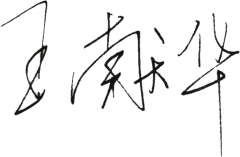 王献华